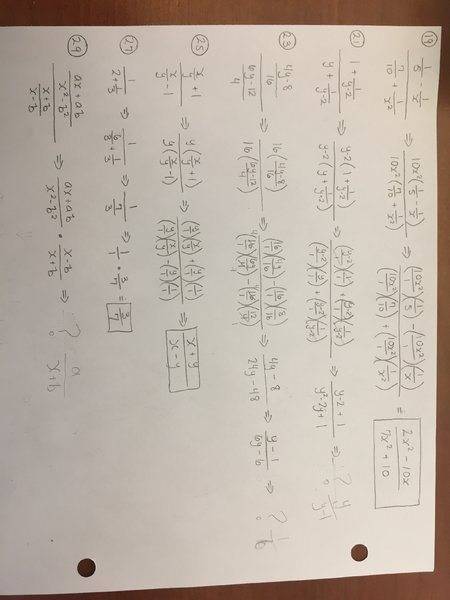 19 (1/5 - 1/x)/(7/10 + 1/x²) ⇒ 10x²(1/5 - 1/x)/10x²(7/10 + 1/x²) ⇒ ((10x²/1)(1/5) - (10x²/1)(1/x))/((10x²/1)(7/10) + (10x²/1)(1/x²)) = (2x² - 10x)/(7x² + 10)
21 (1 + 1/(y-2))/(y + 1/(y-2)) ⇒ y-2(1 + 1/(y-2))/y-2(y + 1/(y-2)) ⇒ ((y-2/1)(1/1) + (y-2/1)(1/y-2))/((y-2/1)(y/1) + (y-2/1)(1/y-2)) ⇒ (y-2+1)/(y²-2y+1) ⇒ ? y/(y-1)
23 ((4y-8)/16)/((6y-12)/4) ⇒ 16((4y-8)/16)/16((6y-12)/4) ⇒ ((16/1)(4y/16) - (16/1)(8/16))/((16/1)(6y/4) - (16/1)(12/4)) ⇒ (4y-8)/(24y-48) ⇒ (y-1)/(6y-6) ⇒ ? 1/6
25 (x/y + 1)/(x/y - 1) ⇒ y(x/y + 1)/y(x/y - 1) ⇒ ((y/1)(x/y) + (y/1)(1/1))/((y/1)(x/y) - (y/1)(1/1)) ⇒ (x+y)/(x-y)
27 1/(2 + 1/3) ⇒ 1/(6/3 + 1/3) ⇒ 1/(7/3) ⇒ 1/1 · 3/7 = 3/7
29 ((ax+ab)/(x²-b²))/((x+b)/(x-b)) ⇒ (ax+ab)/(x²-b²) · (x-b)/(x+b) ⇒ ? a/(x+b)